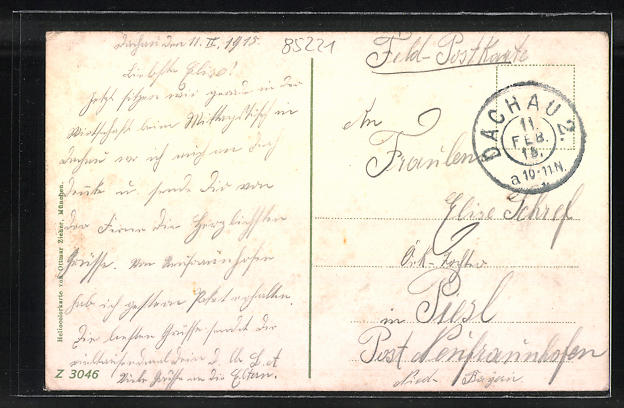 Dachau den 11. II. 1915.
85221
Liebste Elise!
Jetzt sitzen wir gerade in der
Wirtschaft beim Mittagstisch in
Dachau wo ich mich an dich
denke u. sende dir von
der Ferne die Herzlichsten
Grüsse. Von Neufraunhofen
hab ich gestern Paket erhalten.
Die besten Grüsse sendet dir
Viele Grüsse an die Eltern.
Z 3046
Heliocolorkarte von Ottmar Zieher, München.
Feld-Postkarte
DACHAU 2.
11.
FEB.
15.
a 10-11 N.
An
Fräulein
Elise
in
Post Neufraunhofen
Nied. Bayern.